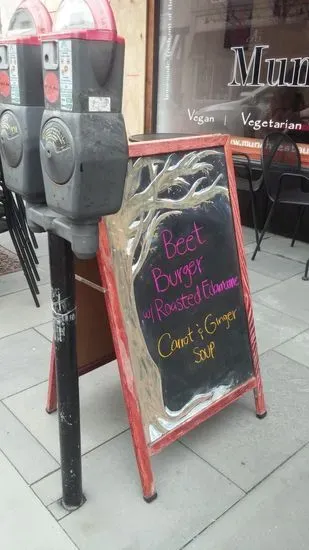 Mun
Vegan | Vegetarian
Beet
Burger
w/ Roasted Edamame
Carrot & Ginger
Soup